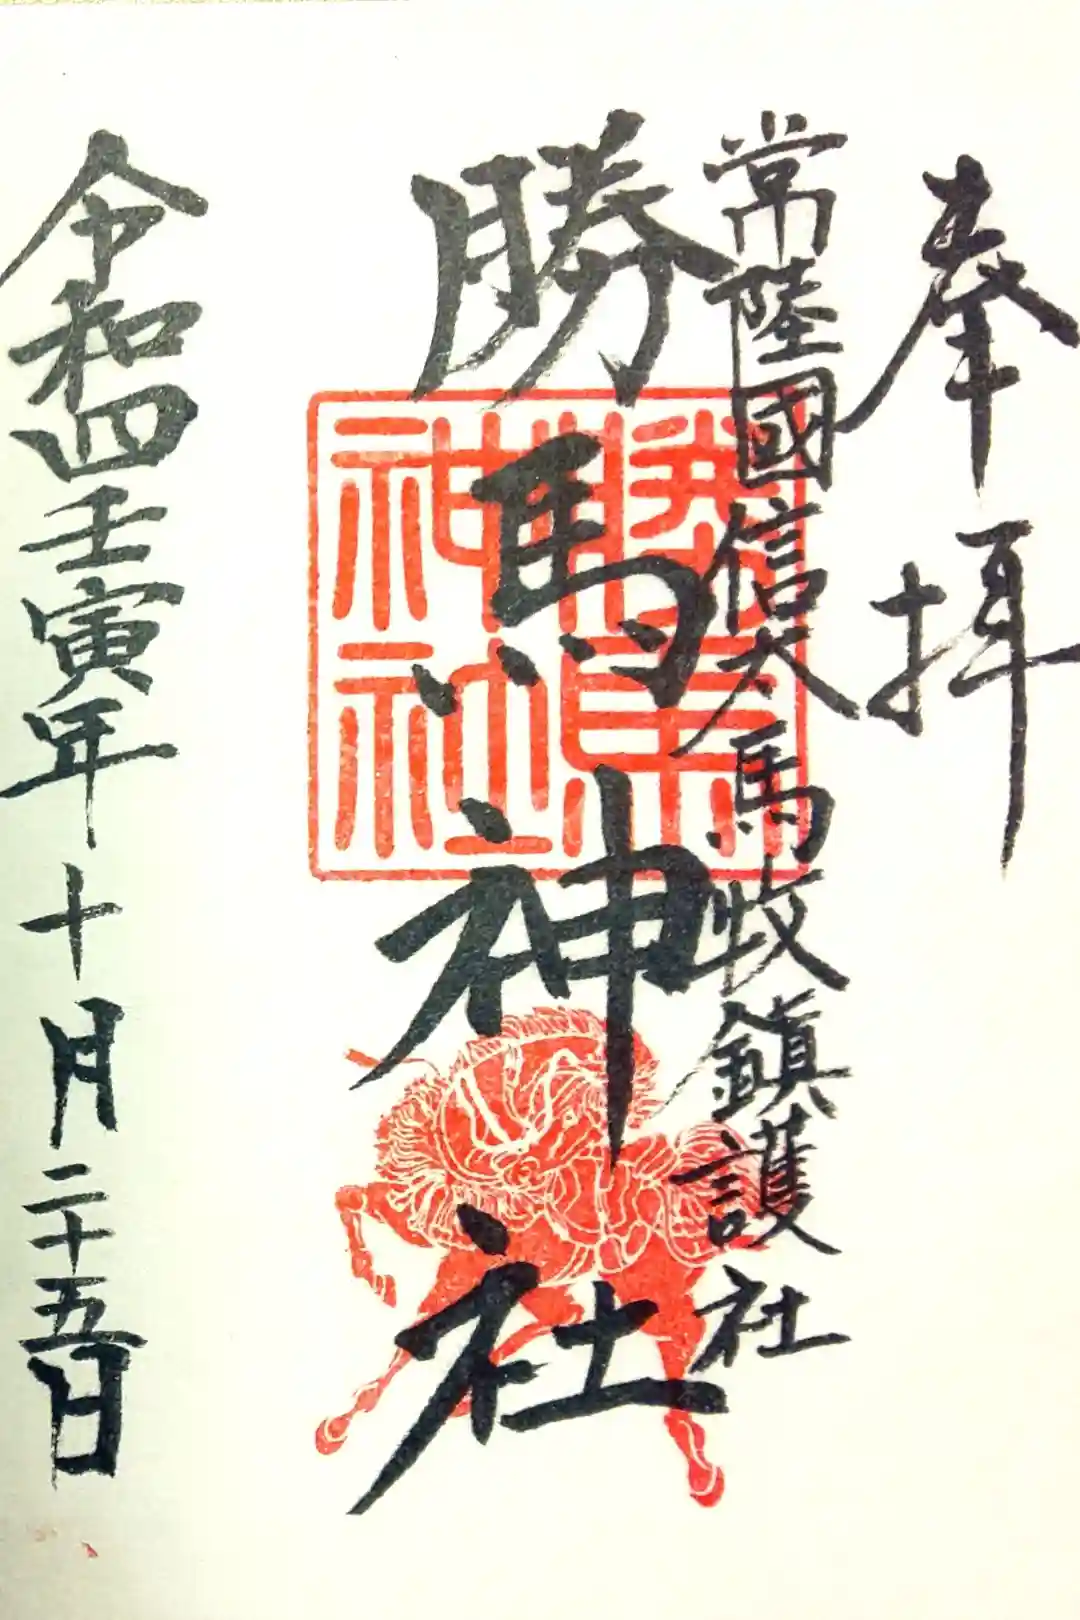 奉拝
常陸國信太馬牧鎮護社
勝馬神社
勝馬神社
令和四壬寅年十月二十五日